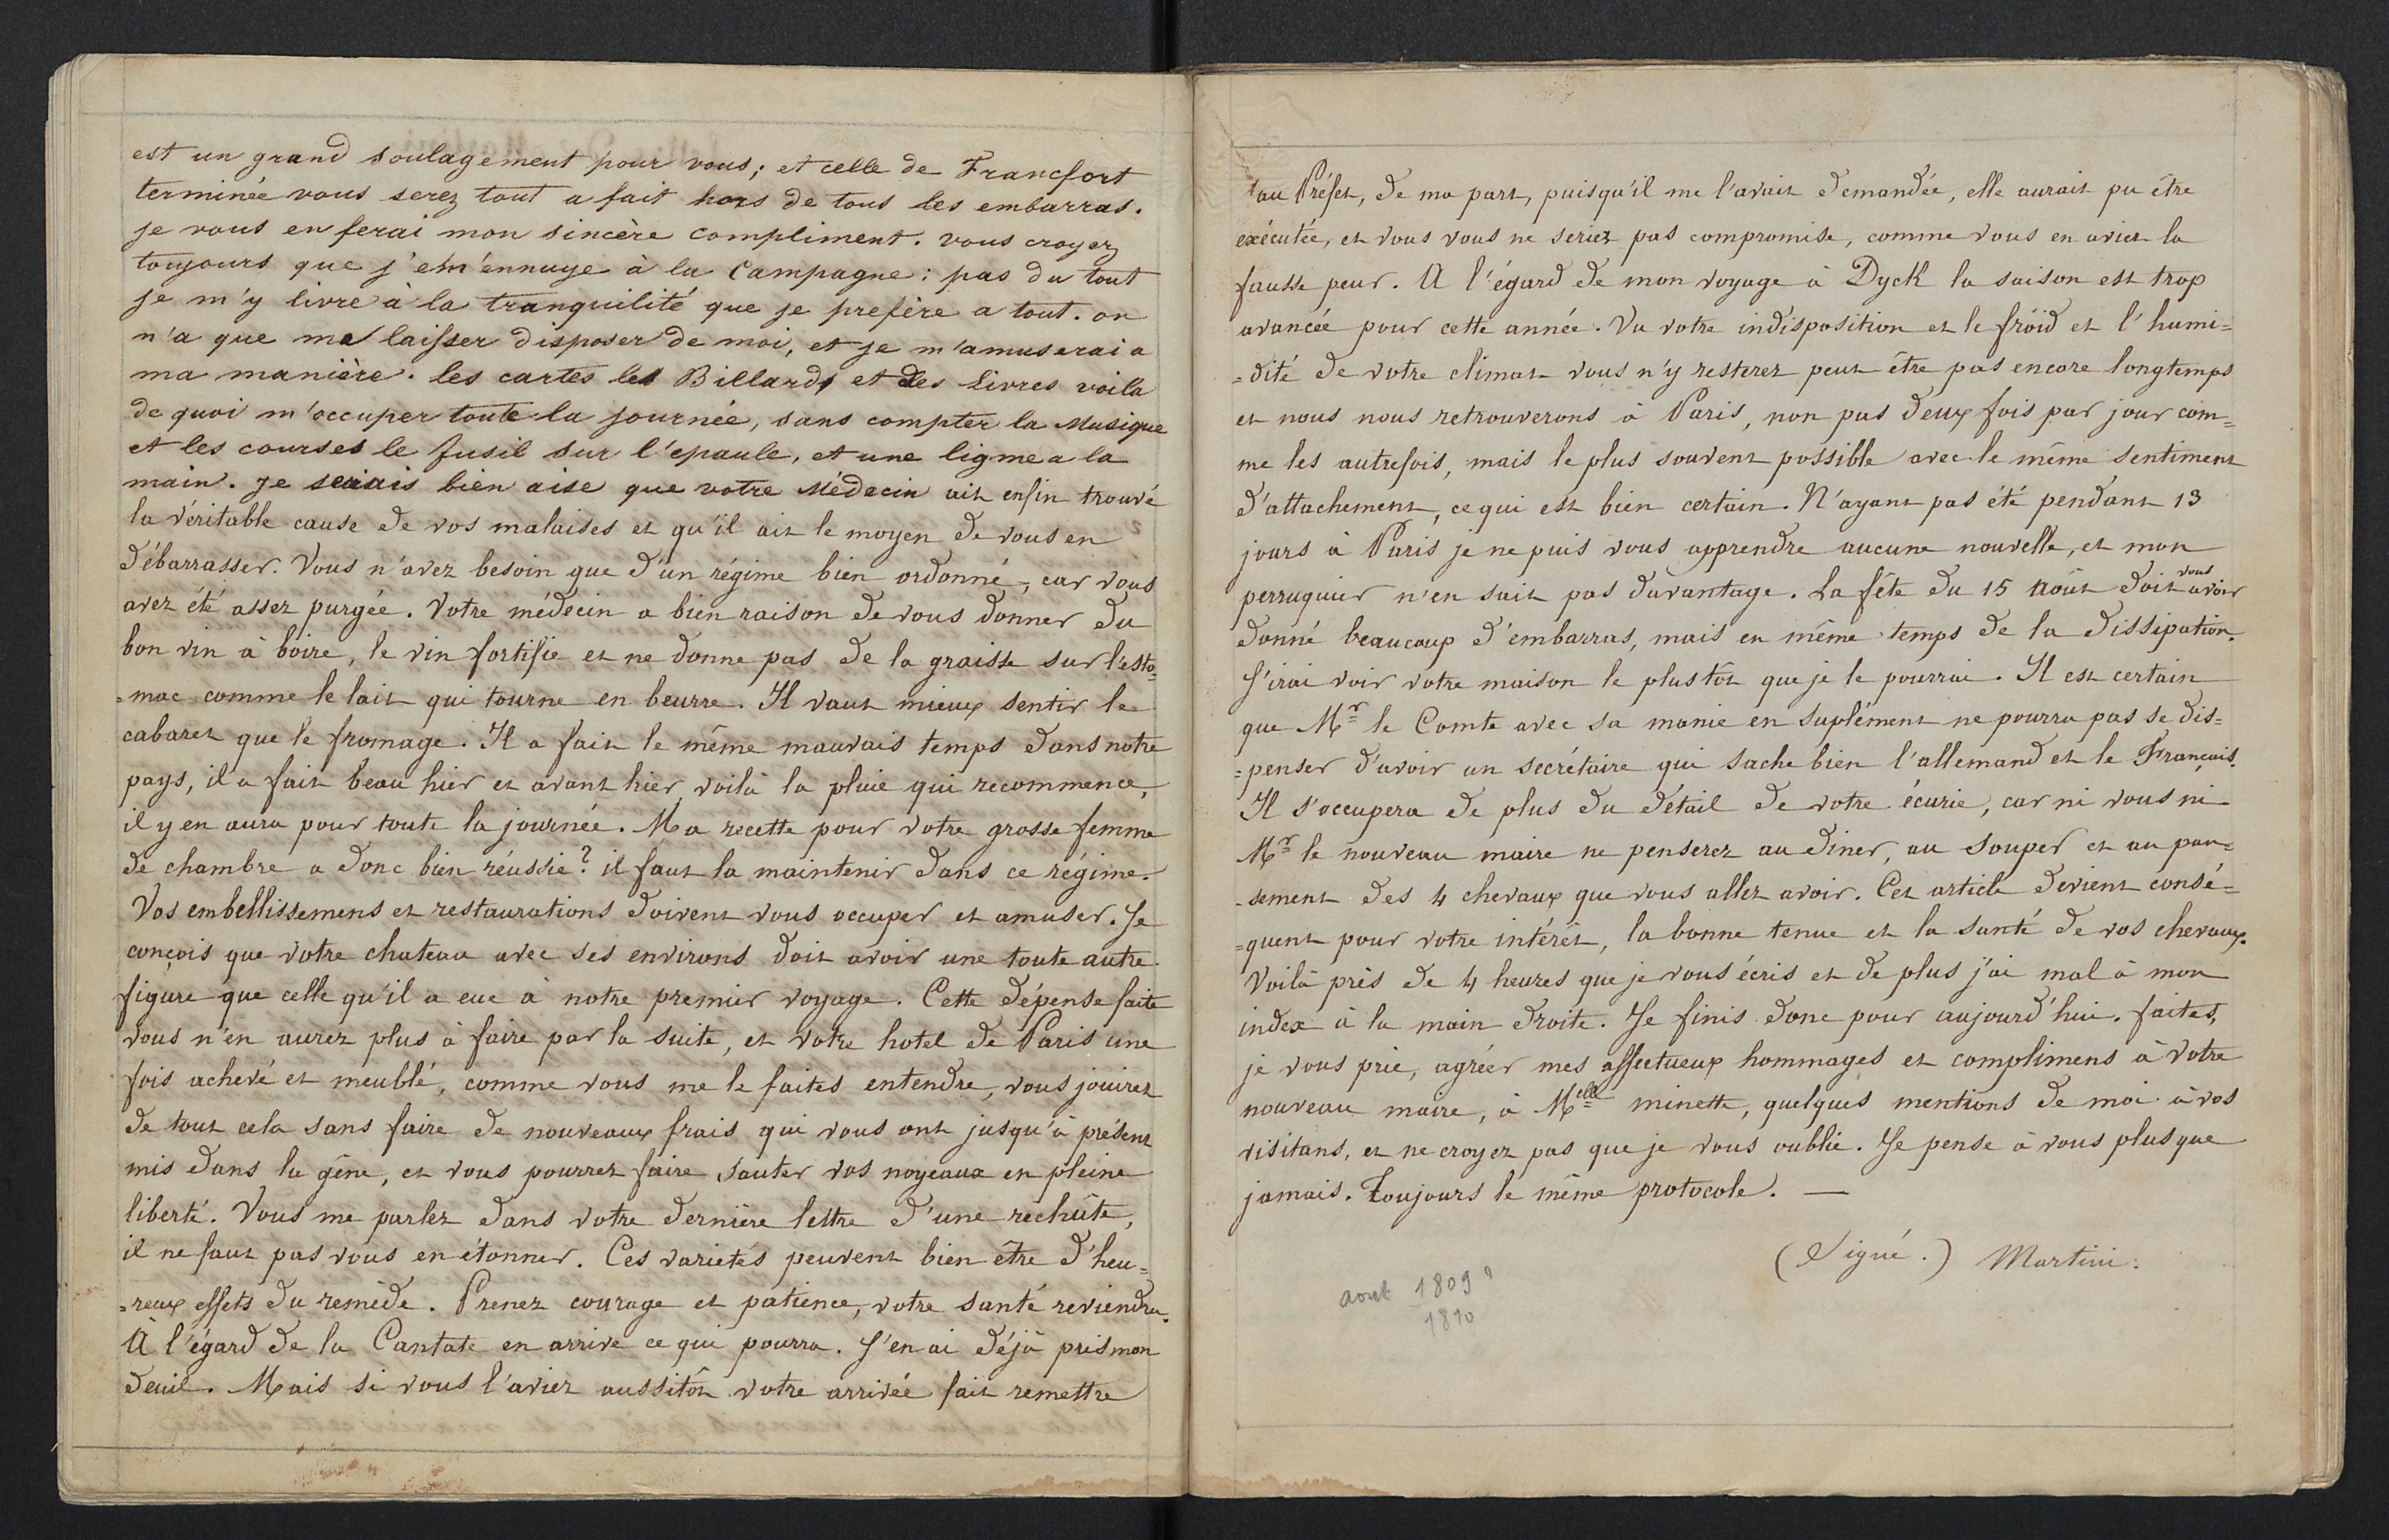 est un grand soulagement pour vous; et celle de Francfort
terminée vous serez tout a fait hors de tous les embarras.
je vous en ferai mon sincère compliment. vous croyez
toujours que j'em'ennuye à la Campagne: pas du tout
je m'y livre à la tranquilité que je prefère a tout. on
n'a que me laisser disposer de moi, et je m'amuserai a
ma manière. les cartes les Billards et des Livres voila
de quoi m'occuper toute la journée, sans compter la Musique
et les courses le fusil sur l'epaule, et une ligne a la
main. je serais bien aise que votre Médecin ait enfin trouvé
la véritable cause de vos malaises et qu'il ait le moyen de vous en
débarrasser. Vous n'avez besoin que d'un régime bien ordonné, car vous
avez été assez purgée. Votre médecin a bien raison de vous donner du
bon vin à boire, le vin fortifie et ne donne pas de la graisse sur l'esto=
=mac comme le lait qui tourne en beurre. Il vaut mieux sentir le
cabaret que le fromage. Il a fait le même mauvais temps dans notre
pays, il a fait beau hier et avant hier, voilà la pluie qui recommence,
il y en aura pour toute la journée. Ma recette pour votre grosse femme
de chambre a donc bien réussie? il faut la maintenir dans ce régime.
Vos embellissemens et restaurations doivent vous occuper et amuser. Je
conçois que votre chateau avec ses environs doit avoir une toute autre
figure que celle qu'il a eue à notre premier voyage. Cette dépense faite
vous n'en aurez plus à faire par la suite, et votre hotel de Paris une
fois achevé et meublé, comme vous me le faites entendre, vous jouirez
de tout cela sans faire de nouveaux frais qui vous ont jusqu'à présent
mis dans la gêne, et vous pourrez faire sauter vos noyeaux en pleine
liberté. Vous me parlez dans votre dernière lettre d'une rechûte,
il ne faut pas vous en étonner. Ces varietés peuvent bien être d'heu=
=reux effets du remède. Prenez courage et patience, votre santé reviendra.
À l'égard de la Cantate en arrive ce qui pourra. J'en ai déjà pris mon
deuil. Mais si vous l'aviez aussitôt votre arrivée fait remettre
au Préfet, de ma part, puisqu'il me l'avait demandée, elle aurait pu être
exécutée, et vous vous ne seriez pas compromise, comme vous en aviez la
fausse peur. A l'égard de mon voyage à Dyck la saison est trop
avancée pour cette année. Vu votre indisposition et le froid et l'humi=
=dité de votre climat vous n'y resterez peut être pas encore longtemps
et nous nous retrouverons à Paris, non pas deux fois par jour com=
me les autrefois, mais le plus souvent possible avec le même sentiment
d'attachement, ce qui est bien certain. N'ayant pas été pendant 13
jours à Paris je ne puis vous apprendre aucune nouvelle, et mon
perruquier n'en sait pas davantage. La fête du 15 Août doit vous avoir
donné beaucoup d'embarras, mais en même temps de la dissipation.
J'irai voir votre maison le plus tôt que je le pourrai. Il est certain
que Mr le Comte avec sa manie en suplément ne pourra pas se dis=
=penser d'avoir un secrétaire qui sache bien l'allemand et le Français.
Il s'occupera de plus du détail de votre écurie, car ni vous ni
Mr le nouveau maire ne penserez au diner, au souper et au pan=
=sement des 4 chevaux que vous allez avoir. Cet article devient consé=
=quent pour votre intérêt, la bonne tenue et la santé de vos chevaux.
Voilà près de 4 heures que je vous écris et de plus j'ai mal à mon
index à la main droite. Je finis donc pour aujourd'hui. faites,
je vous prie, agréer mes affectueux hommages et complimens à votre
nouveau maire, à Melle minette, quelques mentions de moi à vos
visitans, et ne croyez pas que je vous oublie. Je pense à vous plus que
jamais. Toujours le même protocole. —
(Signé.) Martini.
aout 1809?
1810